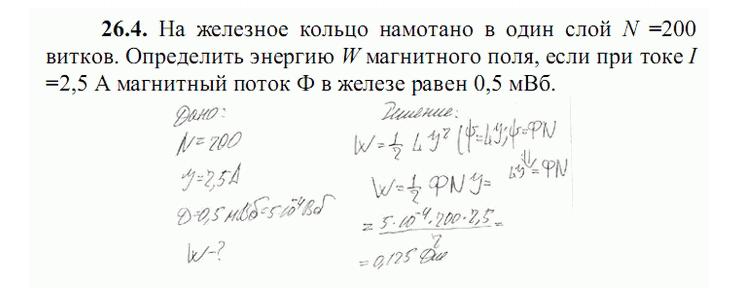 26.4. На железное кольцо намотано в один слой N =200
витков. Определить энергию W магнитного поля, если при токе I
=2,5 А магнитный поток Ф в железе равен 0,5 мВб.
Дано:
N=200
У=2,5А
Ф=0,5 мВб=5·10⁻⁴Вб
W-?
Решение:
W=1/2 LУ² (ψ=LУ; ψ=ФN
⇓
LУ=ФN
W=1/2 ФNУ=
=5·10⁻⁴·200·2,5/2=
=0,125 Дж